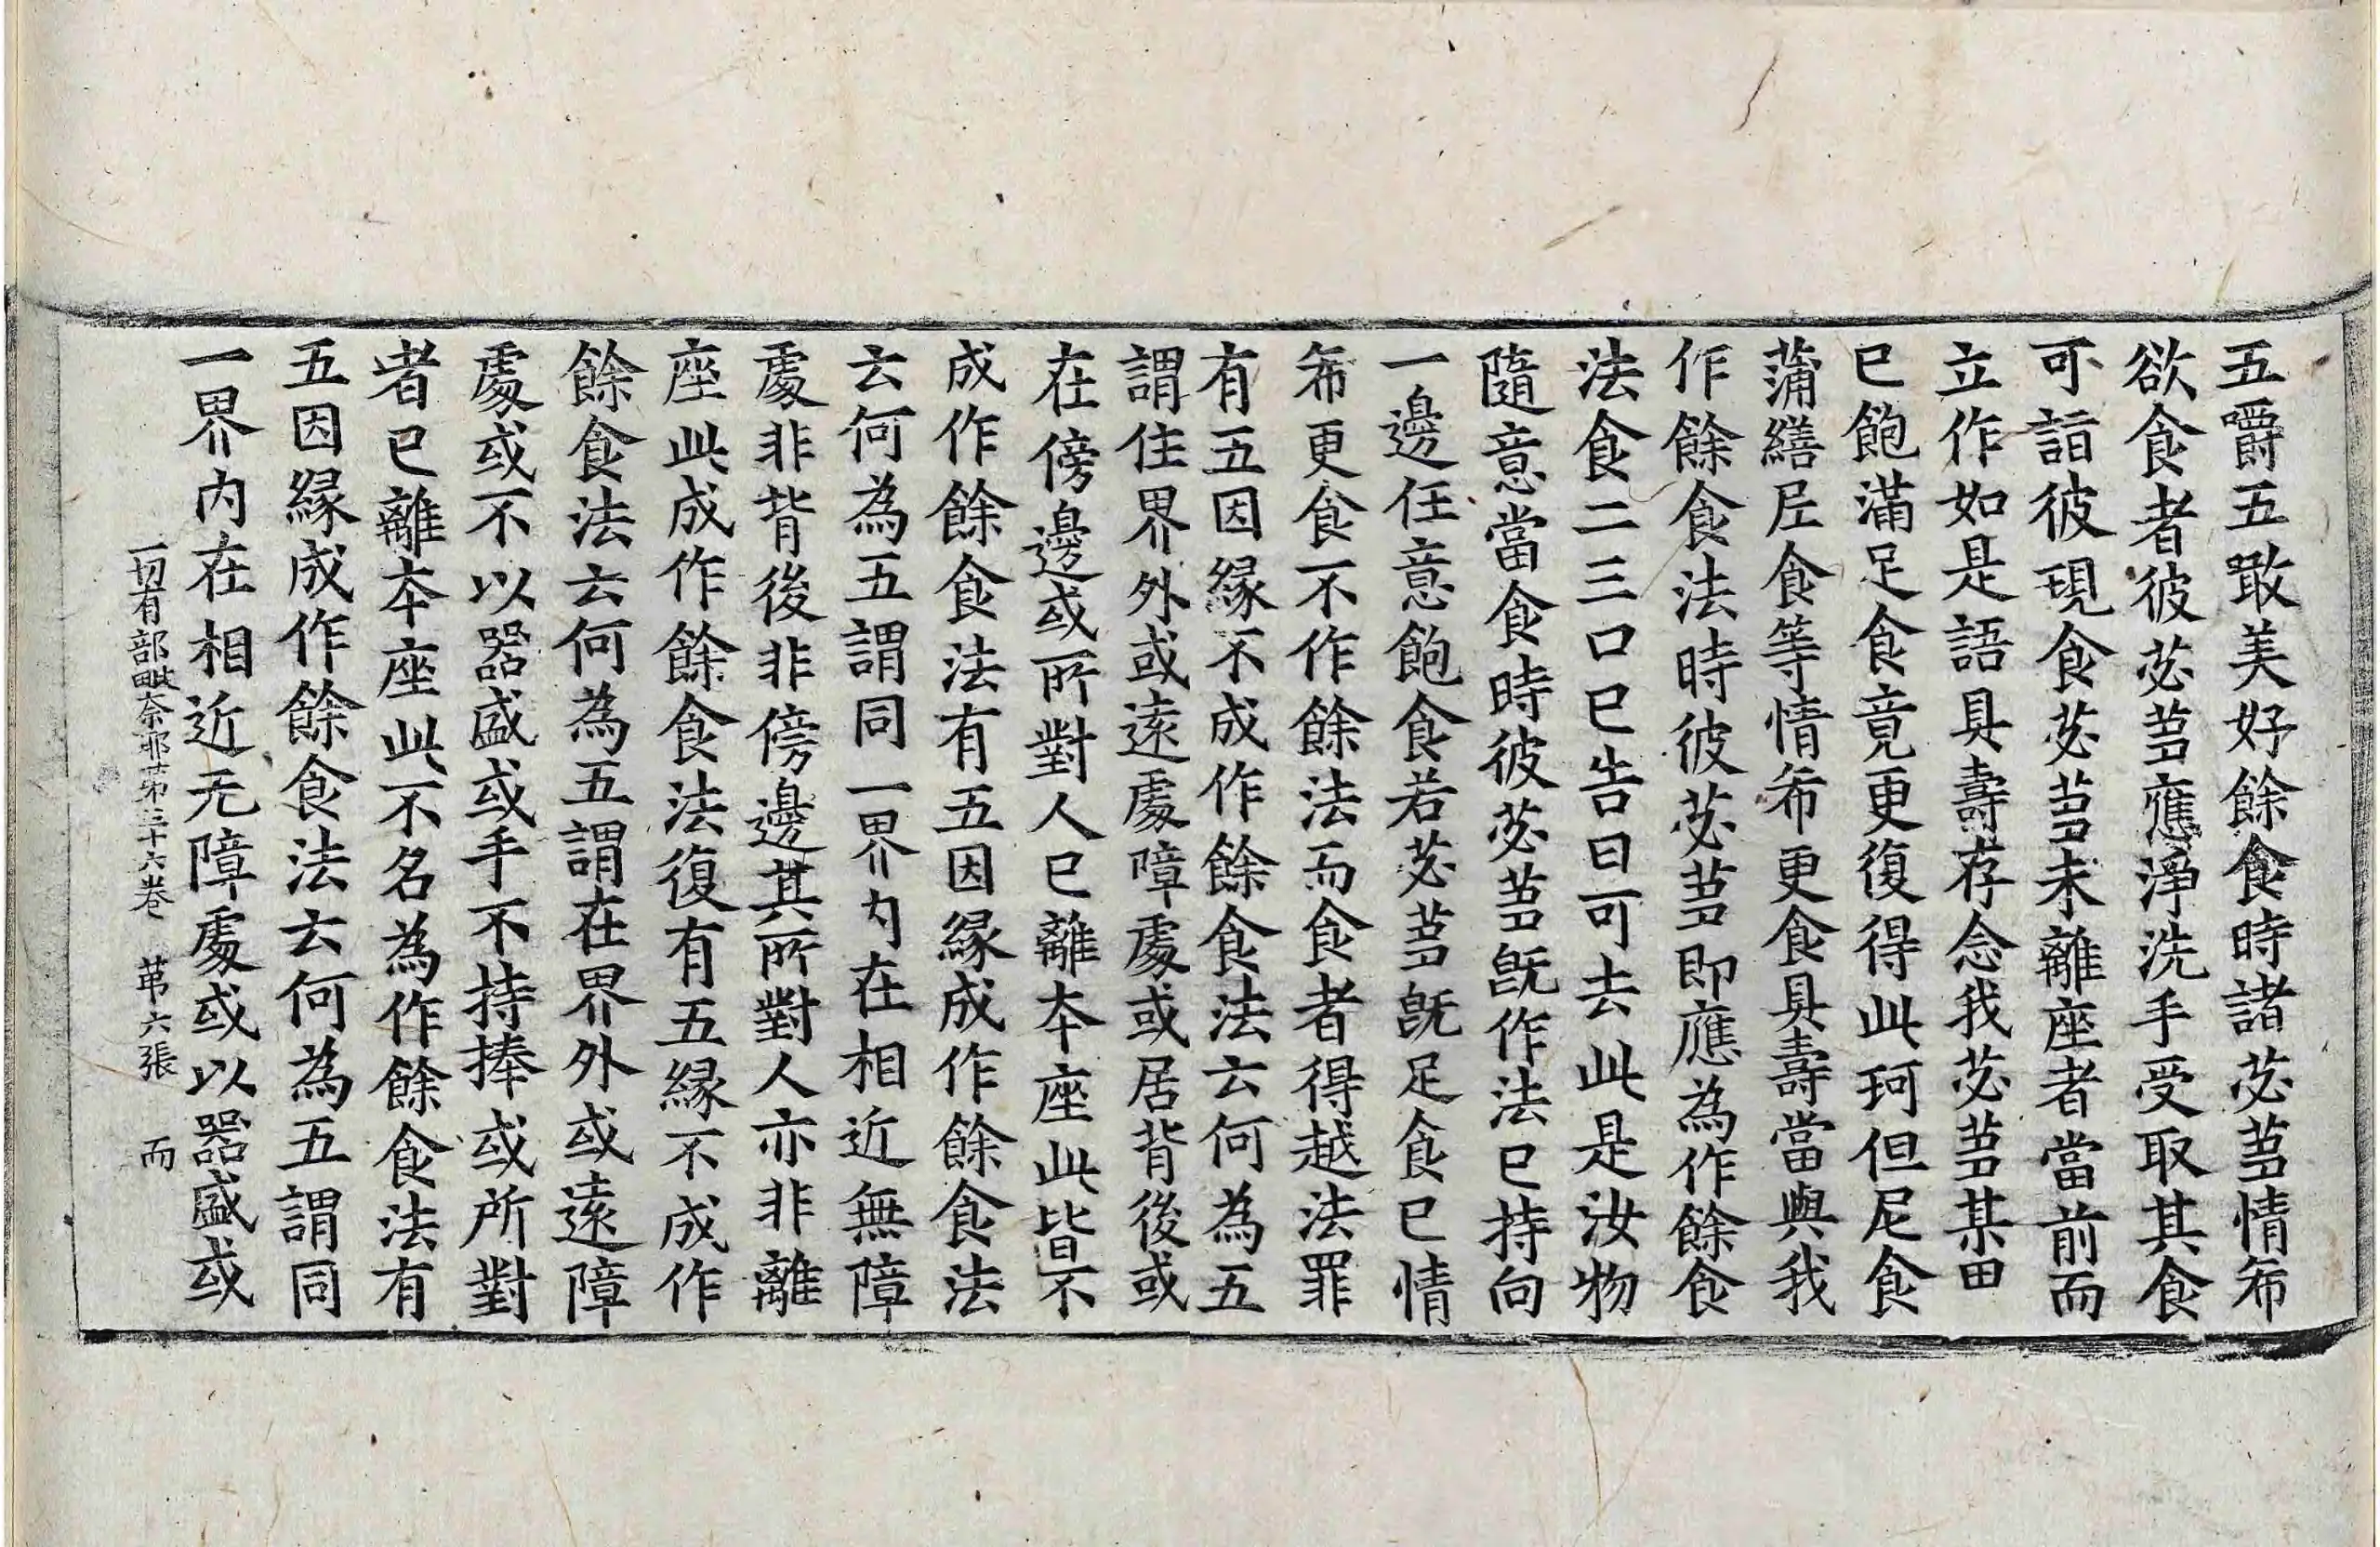 五嚼五噉美好餘食時諸苾芻情希
欲食者彼苾芻應淨洗手受取其食
可詣彼現食苾芻未離座者當前而
立作如是語具壽存念我苾芻某甲
已飽滿足食竟更復得此珂但尼食
蒲繕尼食等情希更食具壽當與我
作餘食法時彼苾芻即應為作餘食
法食二三口已告曰可去此是汝物
隨意當食時彼苾芻既作法已持向
一邊任意飽食若苾芻既足食已情
希更食不作餘法而食者得越法罪
有五因緣不成作餘食法云何為五
謂住界外或遠處障處或居背後或
在傍邊或所對人已離本座此皆不
成作餘食法有五因緣成作餘食法
云何為五謂同一界內在相近無障
處非背後非傍邊其所對人亦非離
座此成作餘食法復有五緣不成作
餘食法云何為五謂在界外或遠障
處或不以器盛或手不持捧或所對
者已離本座此不名為作餘食法有
五因緣成作餘食法云何為五謂同
一界內在相近无障處或以器盛或
一切有部毗奈耶第三十六卷 苐六張 而